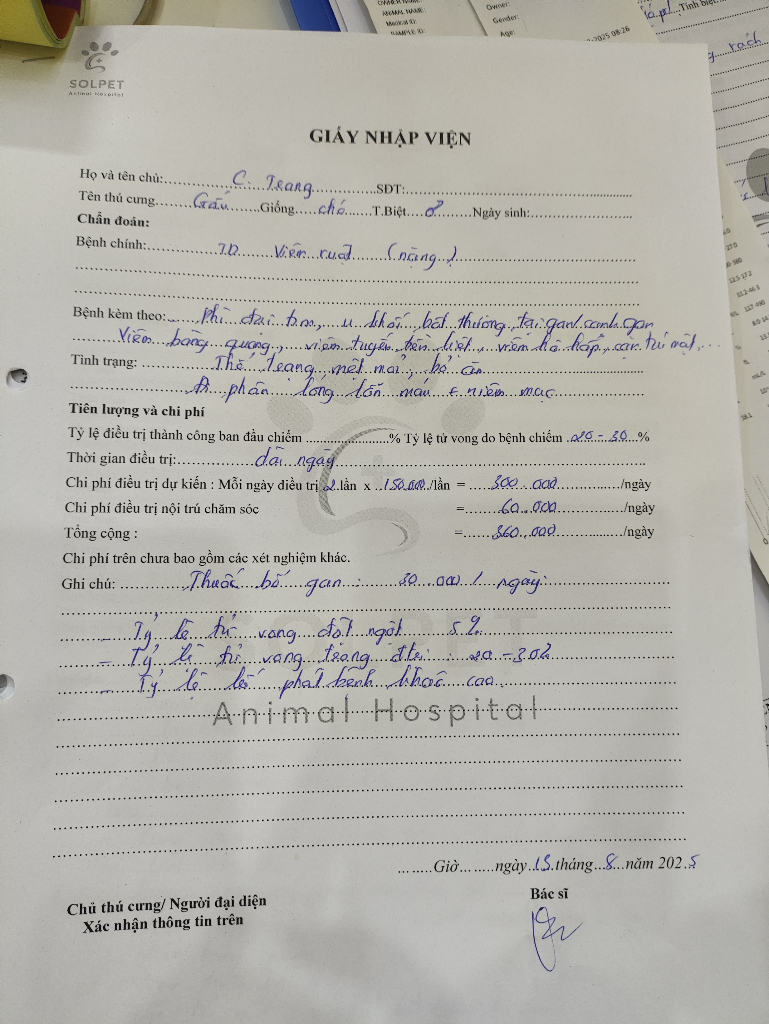 OWNER NAME:
ANIMAL NAME:
Medical ID:
SAMPLE ID:
Owner:
Gender:
Age:
-2025 08:26
Tình biệt
rách
SOLPET
Animal Hospital
GIẤY NHẬP VIỆN
Họ và tên chủ: C. Trang SĐT:
Tên thú cưng Gấu Giống chó T.Biệt ♂ Ngày sinh:
Chẩn đoán:
Bệnh chính: TD viêm ruột (nặng)
Bệnh kèm theo: Phì đại tim, u khối bất thường tại gan/ cạnh gan
Viêm bàng quang, viêm tuyến tiền liệt, viêm hô hấp, cặn túi mật,...
Tình trạng: Thể trạng mệt mỏi, bỏ ăn
Đi phân lỏng lẫn máu + niêm mạc
Tiên lượng và chi phí
Tỷ lệ điều trị thành công ban đầu chiếm ........................% Tỷ lệ tử vong do bệnh chiếm 20 - 30 %
Thời gian điều trị: dài ngày
Chi phí điều trị dự kiến : Mỗi ngày điều trị 2 lần x 150.000 /lần = 300.000 /ngày
Chi phí điều trị nội trú chăm sóc = 60.000 /ngày
Tổng cộng : = 360.000 /ngày
Chi phí trên chưa bao gồm các xét nghiệm khác.
Ghi chú: Thuốc bổ gan : 30.000 / ngày.
- Tỷ lệ tử vong đột ngột 5%
- Tỷ lệ tử vong trong đtrị : 20 - 30%
- Tỷ lệ phát bệnh khác cao.
SOLPET
Animal Hospital
........Giờ ........ngày 13 tháng 8 năm 2025
Chủ thú cưng/ Người đại diện
Bác sĩ
Xác nhận thông tin trên